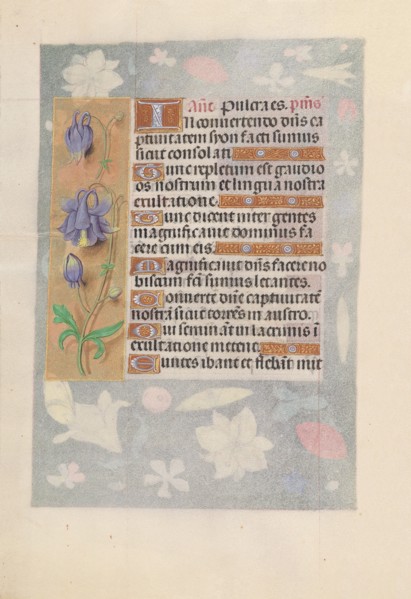 Añt Pulcra es. pms
In conuertendo dñs ca
ptiuitatem syon facti sumus
sicut consolati.
Tunc repletum est gaudio
os nostrum et lingua nostra
exultatione.
Tunc dicent inter gentes
magnificauit dominus fa
cere cum eis.
Magnificauit dñs facere no
biscum fcī sumus letantes.
Conuerte dñe captiuitatē
nostrā sicut torrēs in austro.
Qui seminãt in lacrimis ī
exultatione metent.
Euntes ibant et flebãt mit